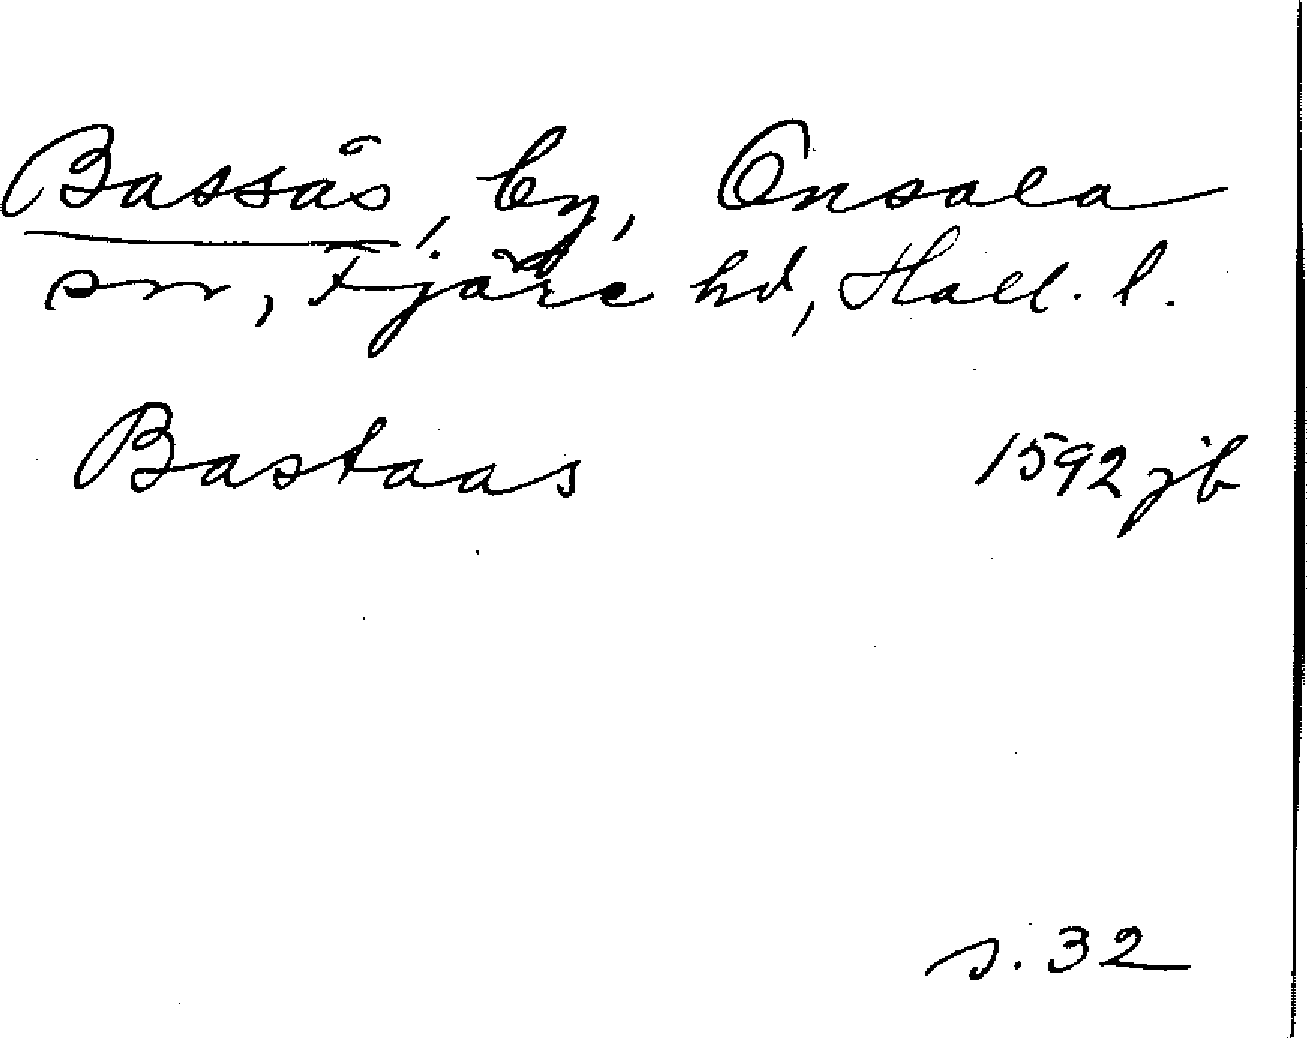 Bassås, by, Onsala
sn, Fjäre hd, Hall. l.
Bastaas 1592 jb
s. 32